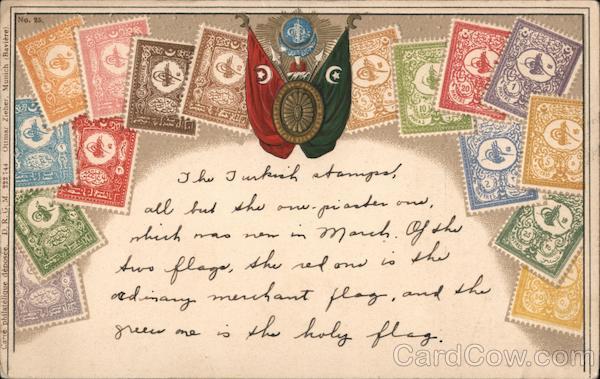 No. 25.
Carte philatélique déposée. D. R. G. M. 222744 Ottmar Zieher, Munich (Bavière).
The Turkish stamps,
all but the one-piaster one,
which was new in March. Of the
two flags, the red one is the
ordinary merchant flag, and the
green one is the holy flag.
CardCow.com